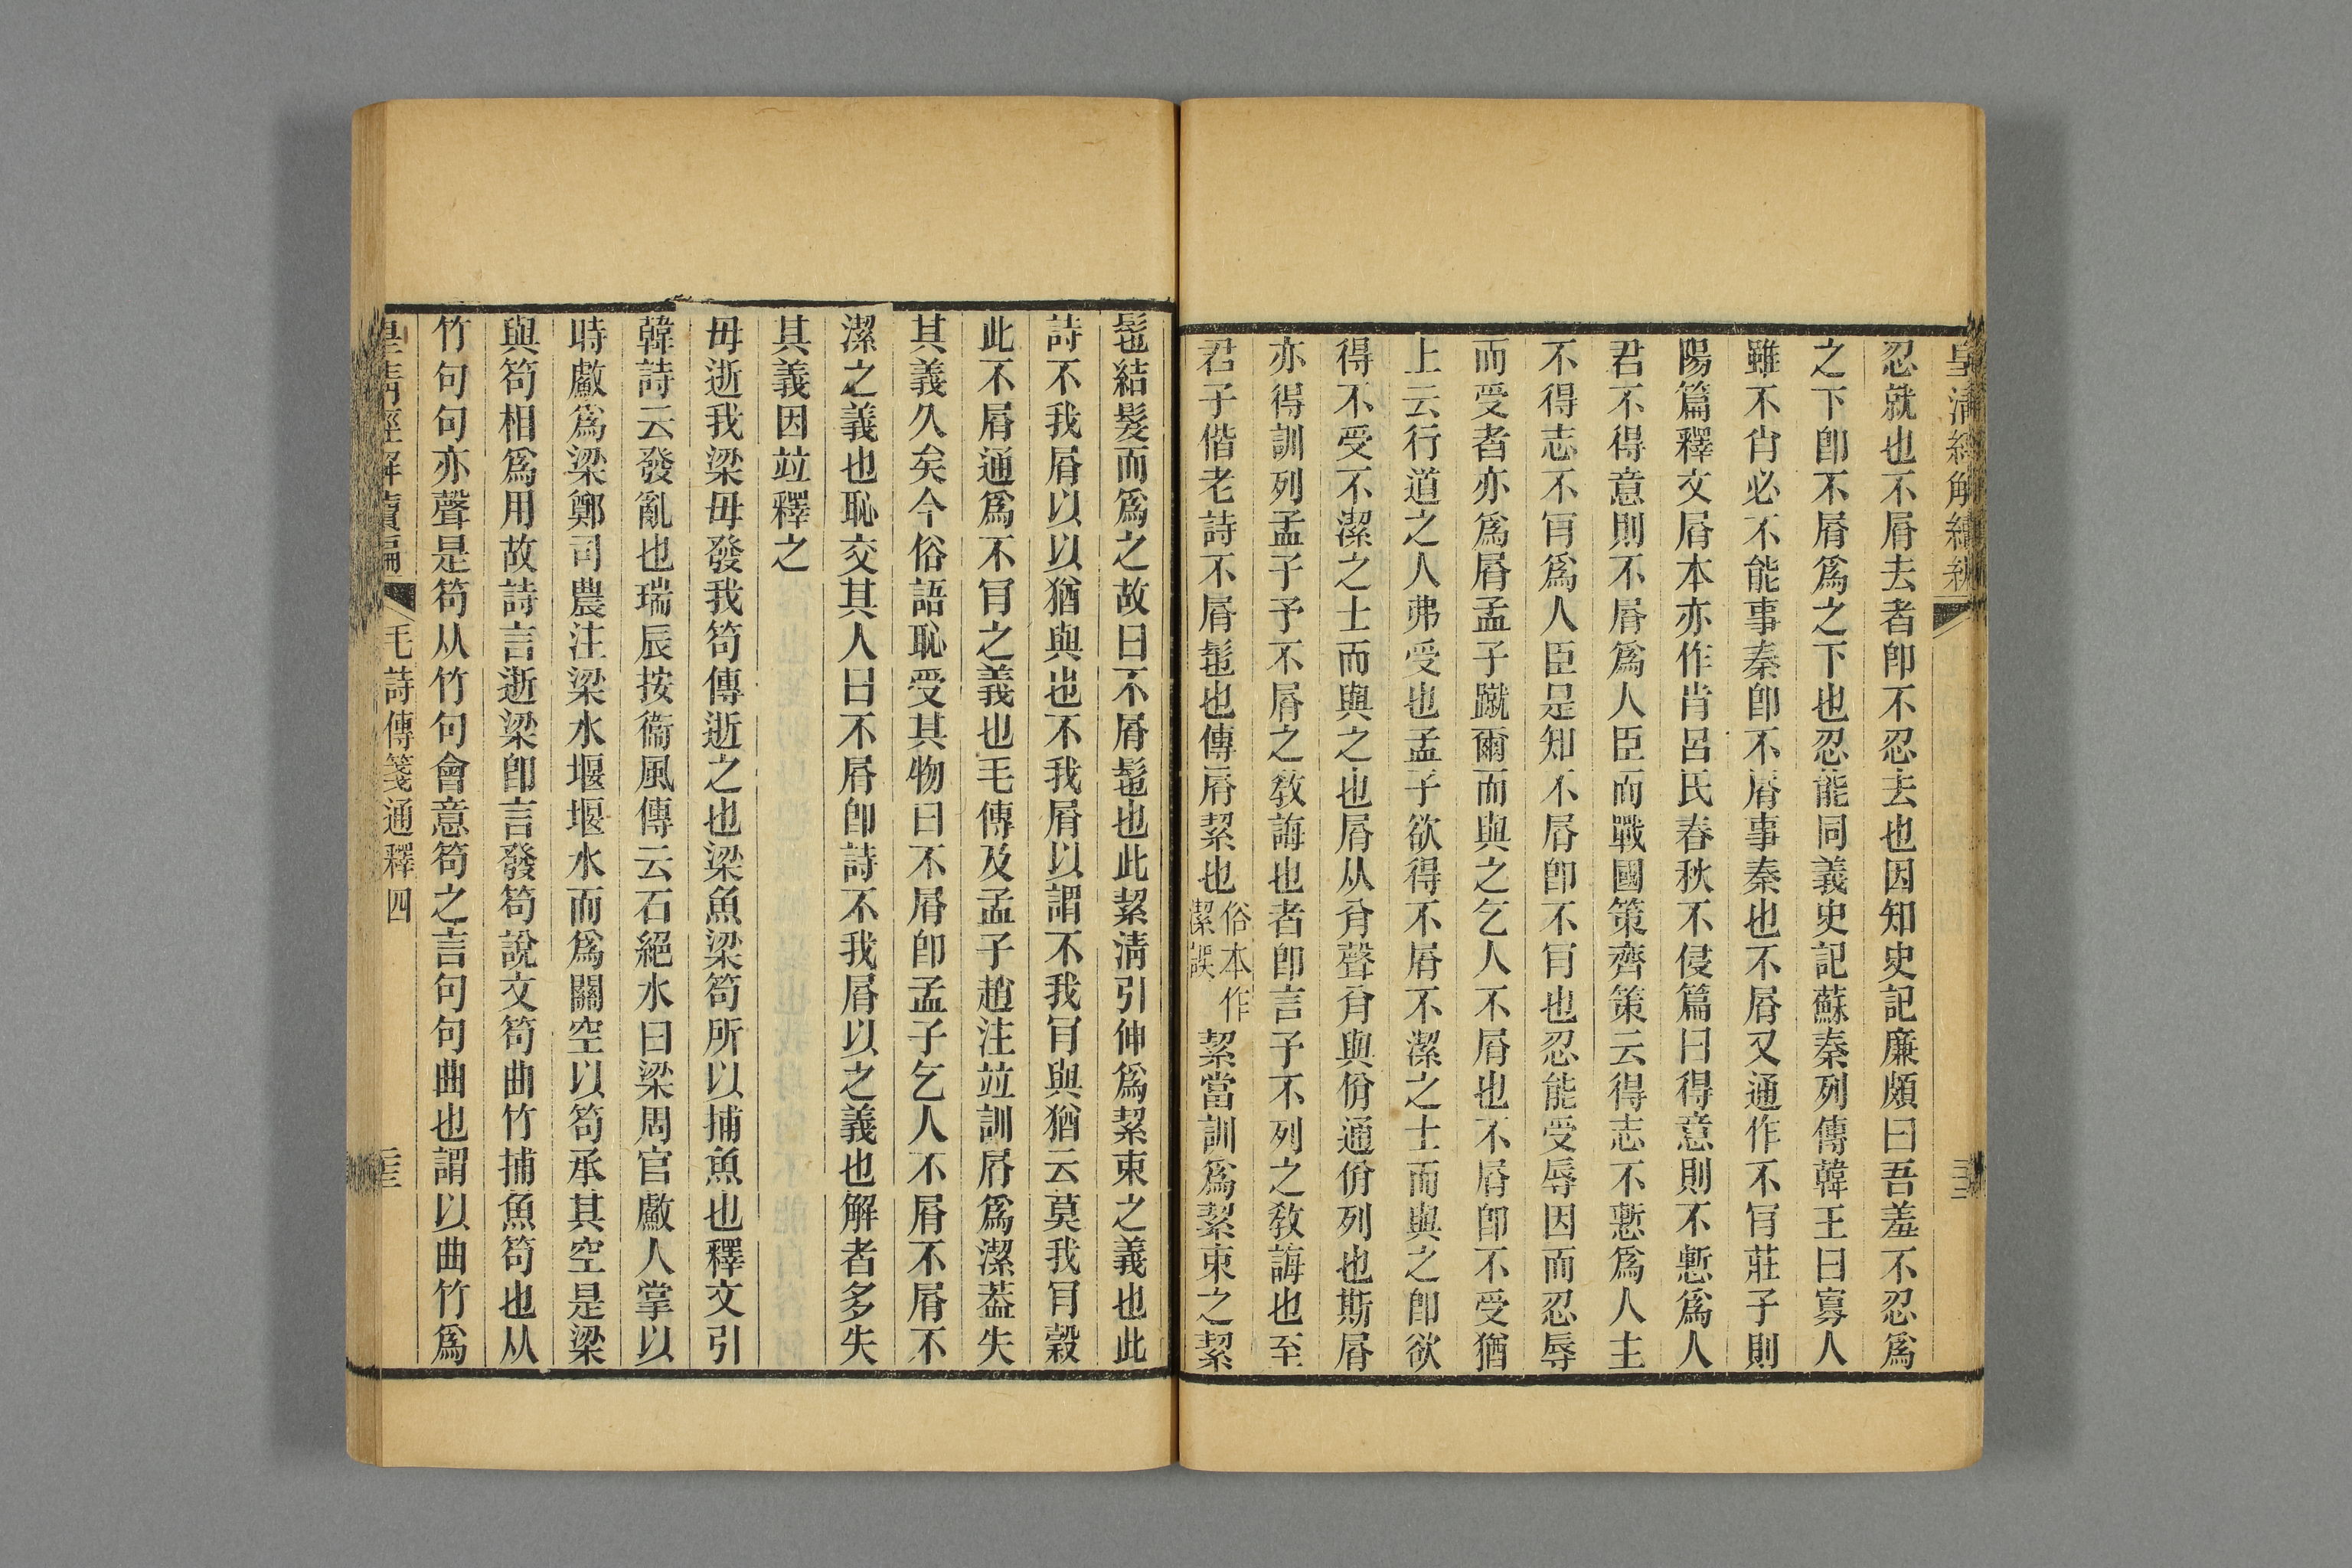 皇清經解續編
忍就也不屑去者卽不忍去也因知史記廉頗曰吾羞不忍爲
之下卽不屑爲之下也忍能同義史記蘇秦列傳韓王曰寡人
雖不肖必不能事秦卽不屑事秦也不屑又通作不肎莊子則
陽篇釋文屑本亦作肖呂氏春秋不侵篇曰得意則不慙爲人
君不得意則不屑爲人臣而戰國策齊策云得志不慙爲人主
不得志不肎爲人臣是知不屑卽不肎也忍能受辱因而忍辱
而受者亦爲屑孟子蹴爾而與之乞人不屑也不屑卽不受猶
上云行道之人弗受也孟子欲得不屑不潔之士而與之卽欲
得不受不潔之士而與之也屑从㕯聲㕯與佾通佾列也斯屑
亦得訓列孟子予不屑之敎誨也者卽言予不列之敎誨也至
君子偕老詩不屑髢也傳屑絜也俗本作潔誤絜當訓爲絜束之絜
髢結髮而爲之故曰不屑髢也此絜淸引伸爲絜束之義也此
詩不我屑以以猶與也不我屑以謂不我肎與猶云莫我肎穀
此不屑通爲不肎之義也毛傳及孟子趙注竝訓屑爲潔葢失
其義久矣今俗語恥受其物曰不屑卽孟子乞人不屑不屑不
潔之義也恥交其人曰不屑卽詩不我屑以之義也解者多失
其義因竝釋之
毋逝我梁毋發我笱傳逝之也梁魚梁笱所以捕魚也釋文引
韓詩云發亂也瑞辰按衞風傳云石絕水曰梁周官䱷人掌以
時䱷爲梁鄭司農注梁水堰堰水而爲關空以笱承其空是梁
與笱相爲用故詩言逝梁卽言發笱說文笱曲竹捕魚笱也从
竹句句亦聲是笱从竹句會意笱之言句句曲也謂以曲竹爲
皇淸經解續編 毛詩傳箋通釋四